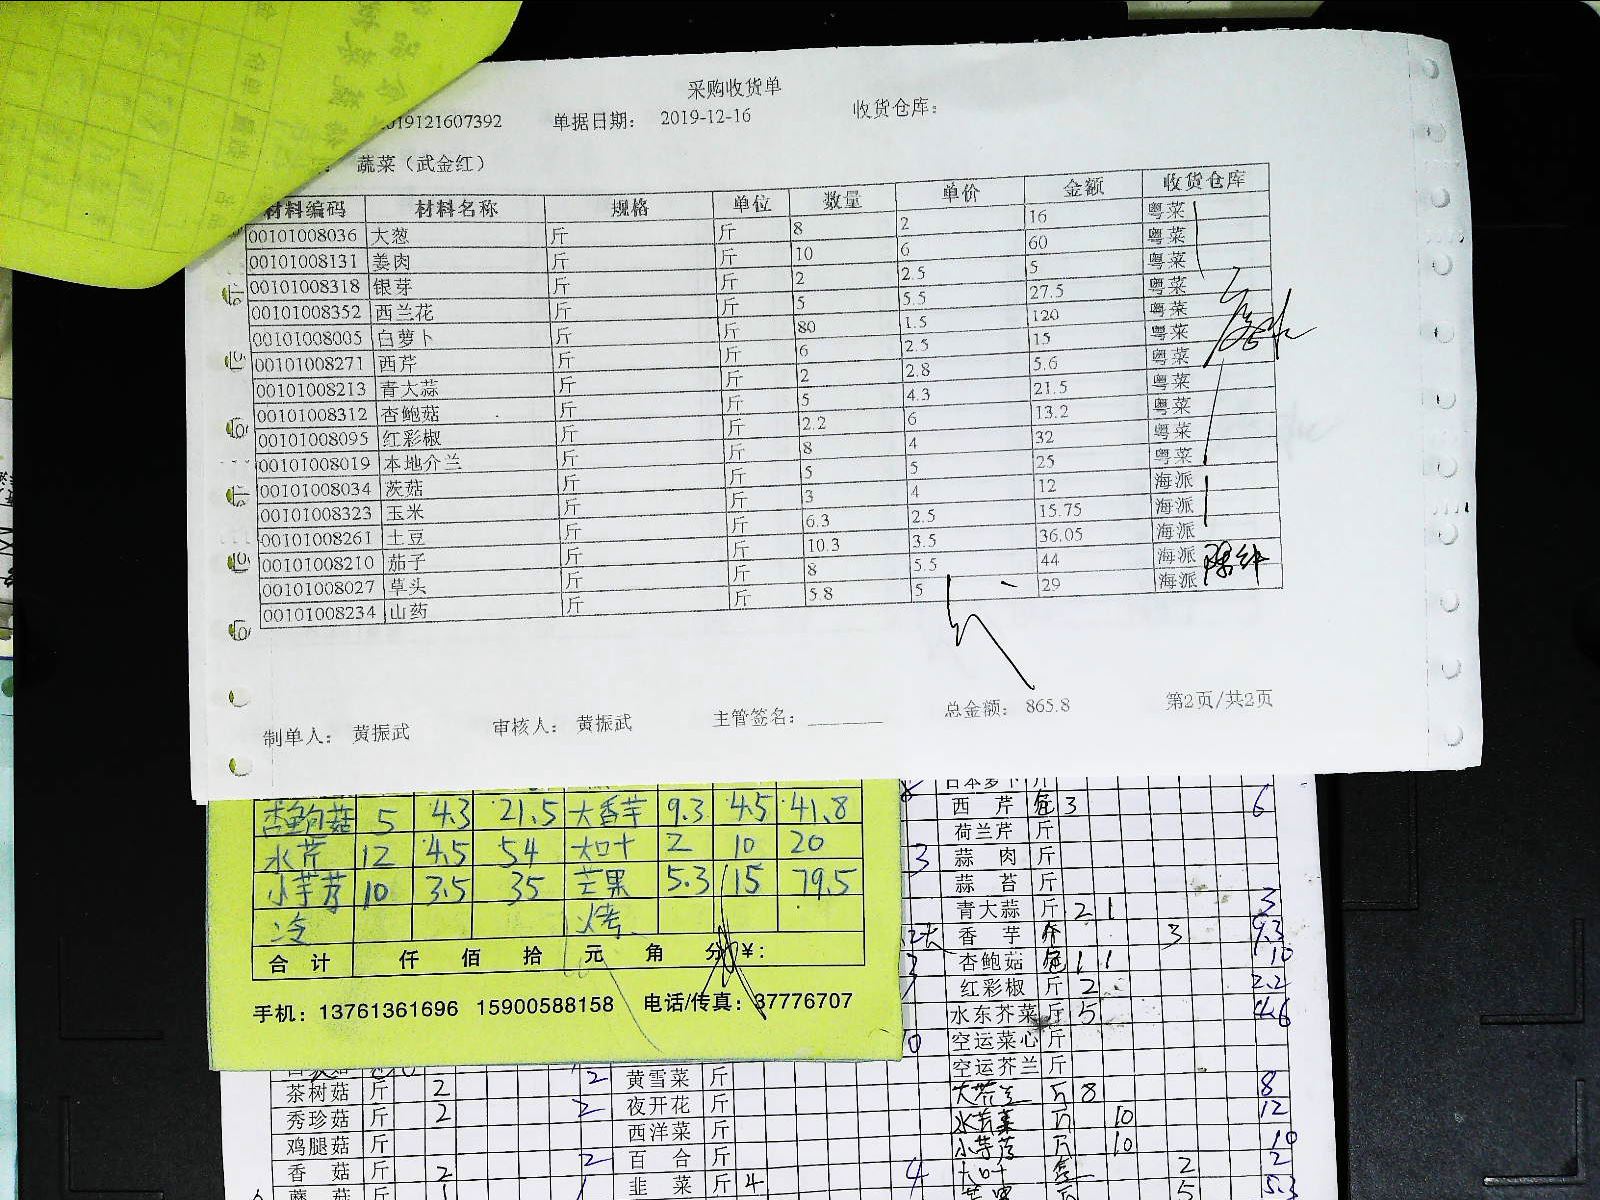 采购收货单
019121607392 单据日期： 2019-12-16 收货仓库：
蔬菜（武金红）
材料编码 材料名称 规格 单位 数量 单价 金额 收货仓库
00101008036 大葱 斤 斤 8 2 16 粤菜
00101008131 姜肉 斤 斤 10 6 60 粤菜
00101008318 银芽 斤 斤 2 2.5 5 粤菜
00101008352 西兰花 斤 斤 5 5.5 27.5 粤菜
00101008005 白萝卜 斤 斤 80 1.5 120 粤菜
00101008271 西芹 斤 斤 6 2.5 15 粤菜
00101008213 青大蒜 斤 斤 2 2.8 5.6 粤菜
00101008312 杏鲍菇 斤 斤 5 4.3 21.5 粤菜
00101008095 红彩椒 斤 斤 2.2 6 13.2 粤菜
00101008019 本地介兰 斤 斤 8 4 32 粤菜
00101008034 茨菇 斤 斤 5 5 25 粤菜
00101008323 玉米 斤 斤 3 4 12 海派
00101008261 土豆 斤 斤 6.3 2.5 15.75 海派
00101008210 茄子 斤 斤 10.3 3.5 36.05 海派
00101008027 草头 斤 斤 8 5.5 44 海派
00101008234 山药 斤 斤 5.8 5 29 海派
制单人： 黄振武 审核人： 黄振武 主管签名： 总金额： 865.8 第2页/共2页
杏鲍菇 5 4.3 21.5 大香芋 9.3 4.5 41.8
水芹 12 4.5 54 大叶 2 10 20
小芋艿 10 3.5 35 芒果 5.3 15 79.5
冷 烤
合计 仟 佰 拾 元 角 分 ¥：
手机：13761361696 15900588158 电话/传真：37776707
日本萝卜 斤
西芹 3 6
荷兰芹 斤
3 蒜肉 斤
蒜苔 斤
青大蒜 斤 2 1 3
香芋 斤 3 9.3
杏鲍菇 1 1 10
红彩椒 斤 2 2.2
水东芥菜 斤 5 4.6
空运菜心 斤
空运芥兰 斤
茶树菇 斤 2 2 黄雪菜 斤 8 8
秀珍菇 斤 2 2 夜开花 斤 10 12
鸡腿菇 斤 西洋菜 斤 小芋艿 斤 10 10
香菇 斤 2 2 百合 斤 4 大叶 2 2
斤 1 1 韭菜 斤 4 5 5.3